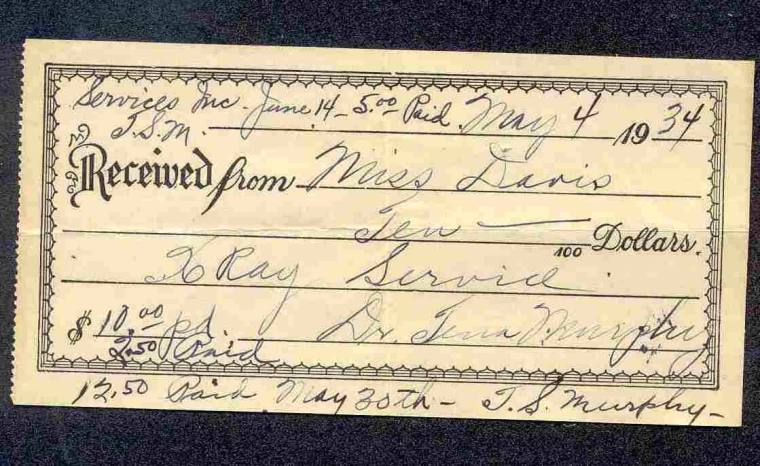 Services Inc. June 14 - 5.00 Paid. May 4 1934
T.S.M.
Received from Miss Davis
Ten — 100 Dollars.
X Ray Service
$ 10.00 pd. Dr. Tena Murphy
2.50 Paid
12.50 Paid May 30th - T.S. Murphy -